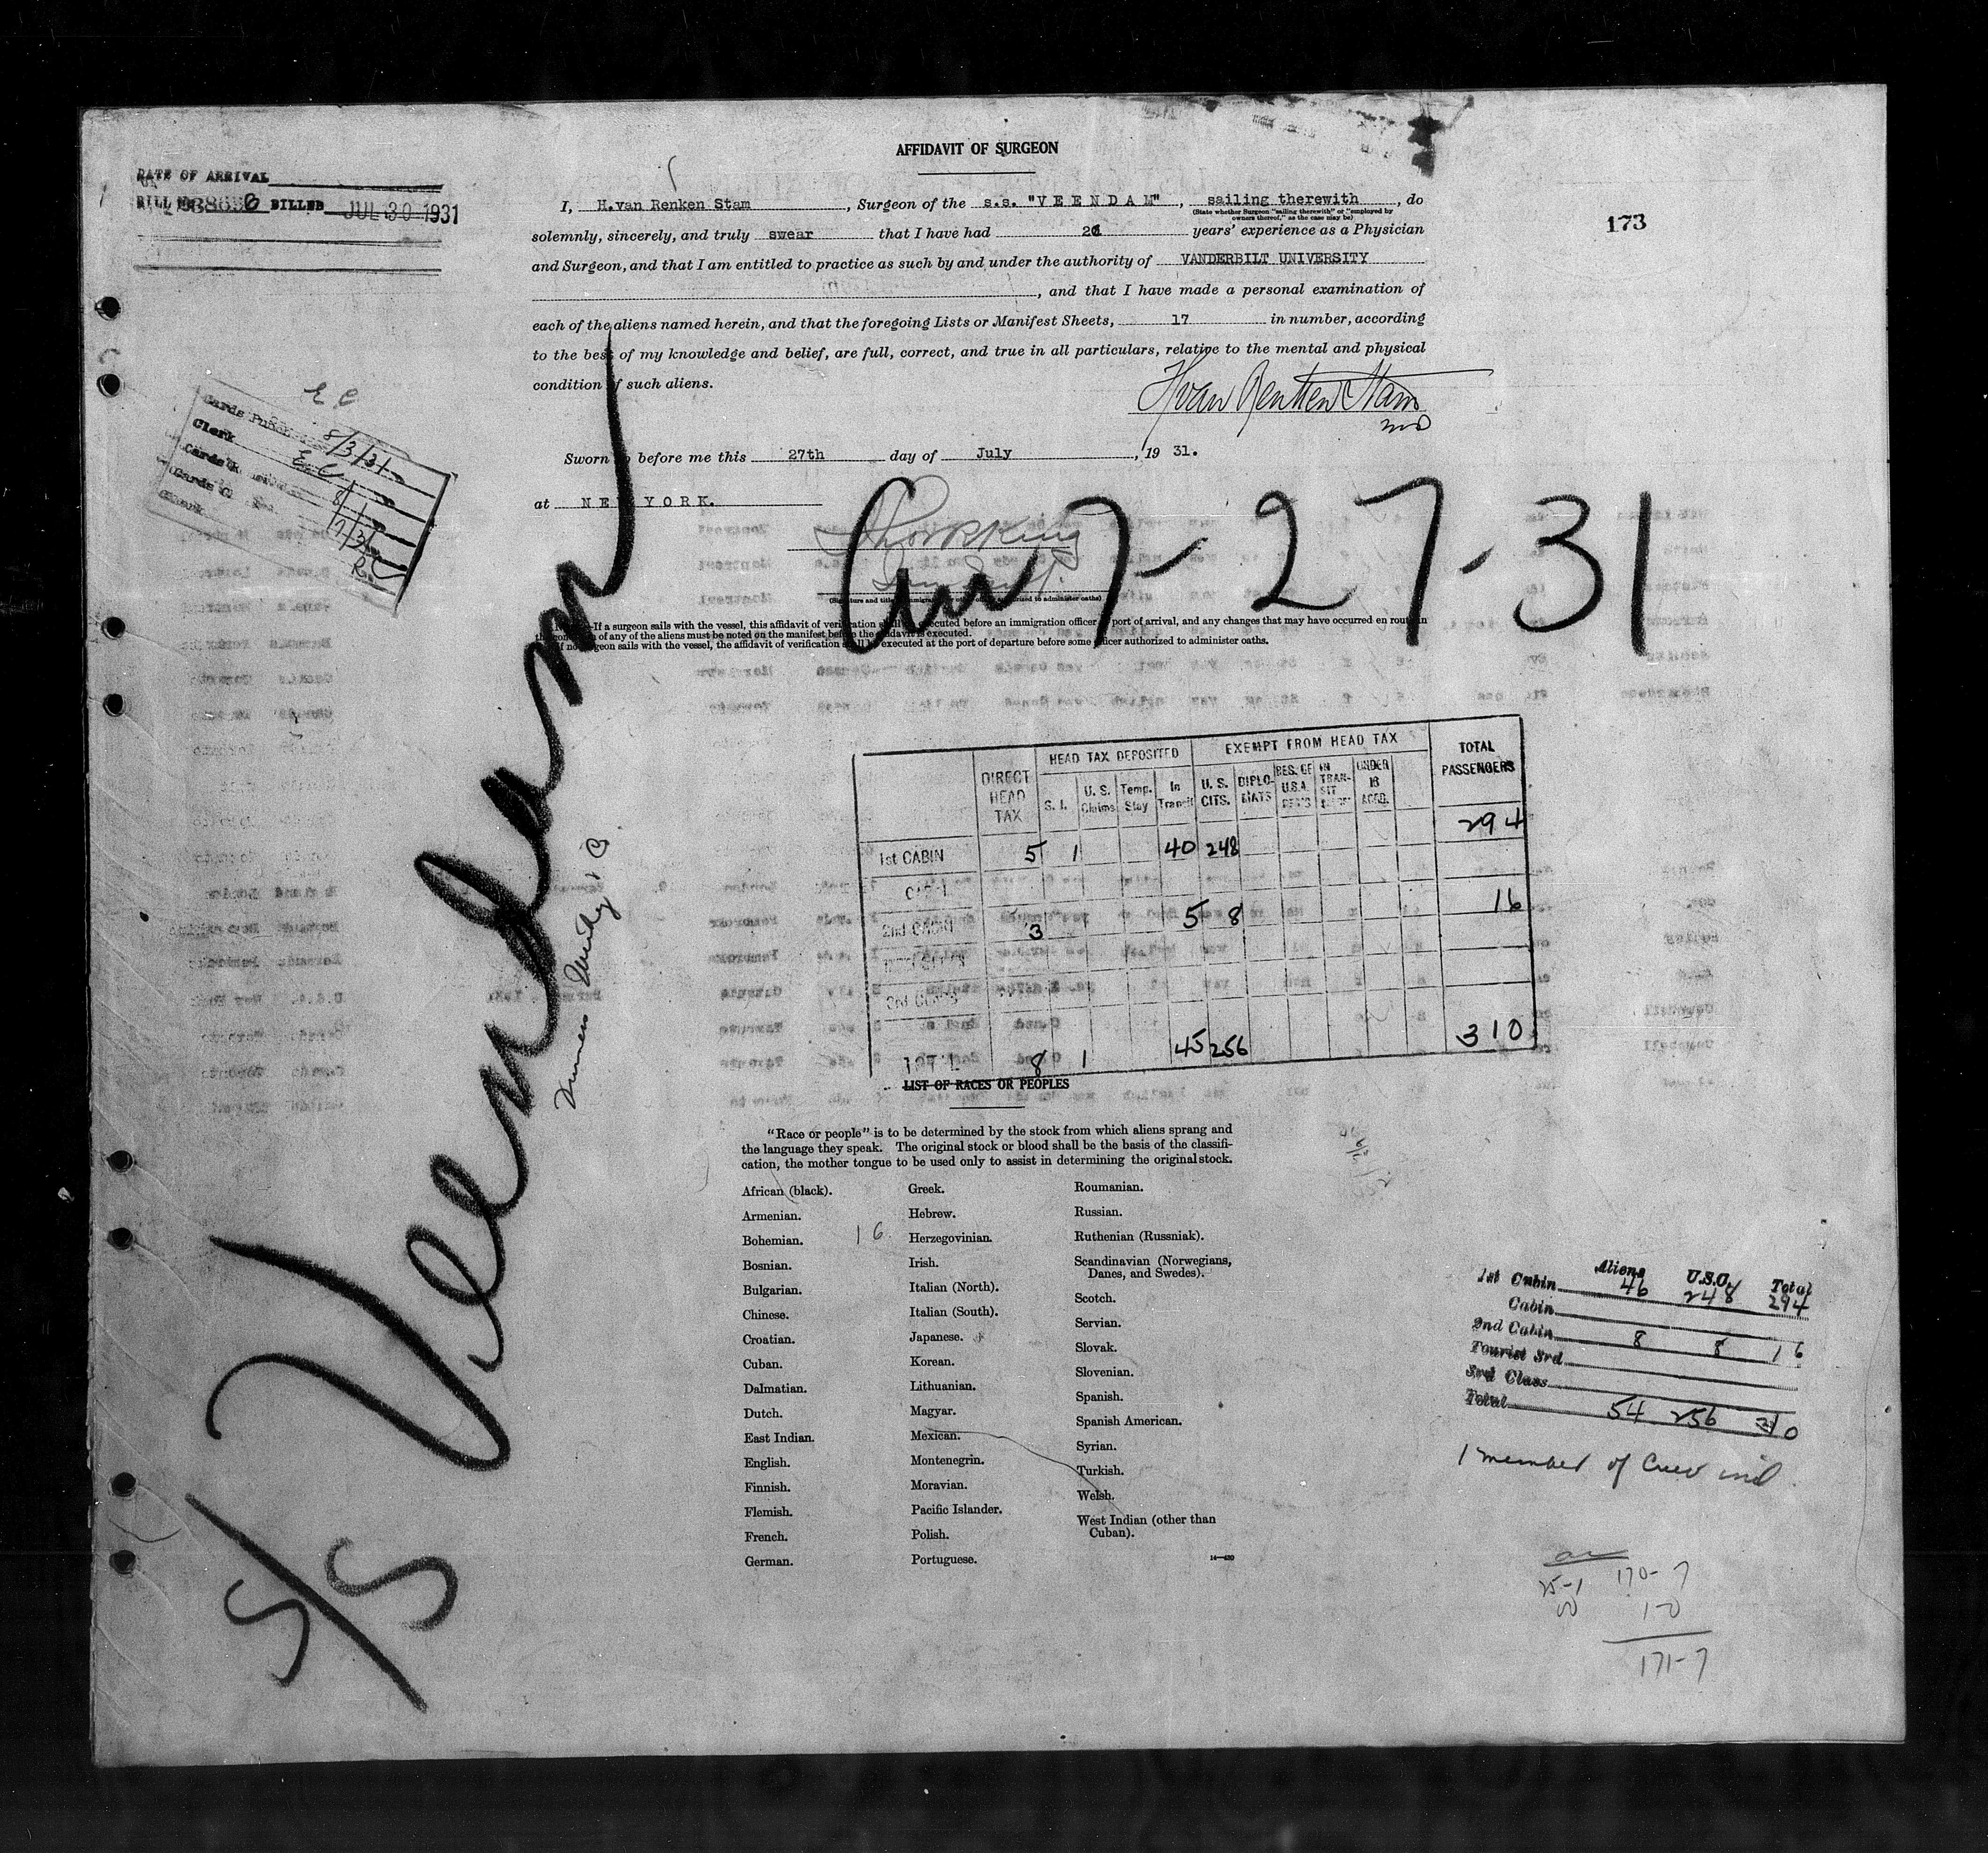 AFFIDAVIT OF SURGEON
DATE OF ARRIVAL
BILL No. BILLED JUL 30 1931
173
I, H.van Renken Stam, Surgeon of the s.s. "VEENDAM", sailing therewith, do
(State whether Surgeon "sailing therewith" or "employed by
owners thereof," as the case may be)
solemnly, sincerely, and truly swear that I have had years' experience as a Physician
and Surgeon, and that I am entitled to practice as such by and under the authority of VANDERBILT UNIVERSITY
, and that I have made a personal examination of
each of the aliens named herein, and that the foregoing Lists or Manifest Sheets, 17 in number, according
to the best of my knowledge and belief, are full, correct, and true in all particulars, relative to the mental and physical
condition of such aliens.
H van Renken Stam
MD
E C
Cards
8/3/31
Clerk E C
Cards
Cards
Clerk
Sworn to before me this 27th day of July, 19 31.
at NEW YORK.
Arr 7-27-31
Note.—If a surgeon sails with the vessel, this affidavit of verification shall be executed before an immigration officer at port of arrival, and any changes that may have occurred en route in
the condition of any of the aliens must be noted on the manifest before the affidavit is executed.
If no surgeon sails with the vessel, the affidavit of verification shall be executed at the port of departure before some officer authorized to administer oaths.
S/S Veendam
DIRECT HEAD TAX
HEAD TAX DEPOSITED
EXEMPT FROM HEAD TAX
TOTAL PASSENGERS
S. I. U. S. Claims Temp. Stay In Transit U. S. CITS. DIPLO-MATS RES. OF U.S.A. IN TRAN-SIT UNDER 16 ACCD.
1st CABIN 5 1 40 248 294
CABIN
2nd CABIN 3 5 8 16
3rd CLASS
TOTAL 8 1 45 256 310
LIST OF RACES OR PEOPLES
"Race or people" is to be determined by the stock from which aliens sprang and
the language they speak. The original stock or blood shall be the basis of the classifi-
cation, the mother tongue to be used only to assist in determining the original stock.
African (black).
Armenian.
Bohemian.
Bosnian.
Bulgarian.
Chinese.
Croatian.
Cuban.
Dalmatian.
Dutch.
East Indian.
English.
Finnish.
Flemish.
French.
German.
16
Greek.
Hebrew.
Herzegovinian.
Irish.
Italian (North).
Italian (South).
Japanese.
Korean.
Lithuanian.
Magyar.
Mexican.
Montenegrin.
Moravian.
Pacific Islander.
Polish.
Portuguese.
Roumanian.
Russian.
Ruthenian (Russniak).
Scandinavian (Norwegians,
Danes, and Swedes).
Scotch.
Servian.
Slovak.
Slovenian.
Spanish.
Spanish American.
Syrian.
Turkish.
Welsh.
West Indian (other than
Cuban).
14—430
Aliens U.S.C. Total
1st Cabin 46 248 294
Cabin
2nd Cabin 8 8 16
Tourist 3rd
3rd Class
Total 54 256 310
1 member of Crew
170-7
1-0
171-7